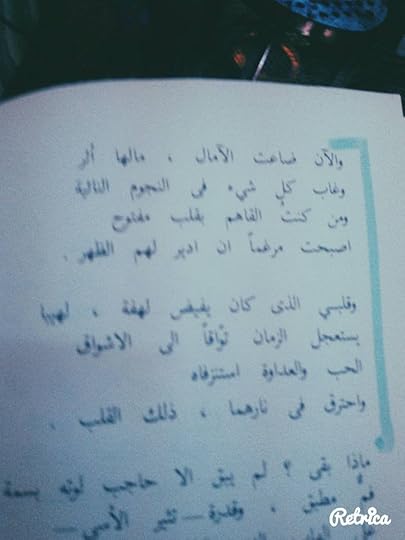 والآن ضاعت الآمال ، مالها أثر
وغاب كل شيء فى النجوم النائية
ومن كنت القاهم بقلب مفتوح
اصبحت مرغماً ان ادير لهم الظهر .
وقلبي الذى كان يفيض لهفة ، لهيبا
يستعجل الزمان تواقاً الى الاشواق
الحب والعداوة استنزفاه
واحترق فى نارهما ، ذلك القلب .
ماذا بقى ؟ لم يبق الا حاجب لوته بسمة
فم مطبق ، وقدرة — تثير الأسى —
Retrica